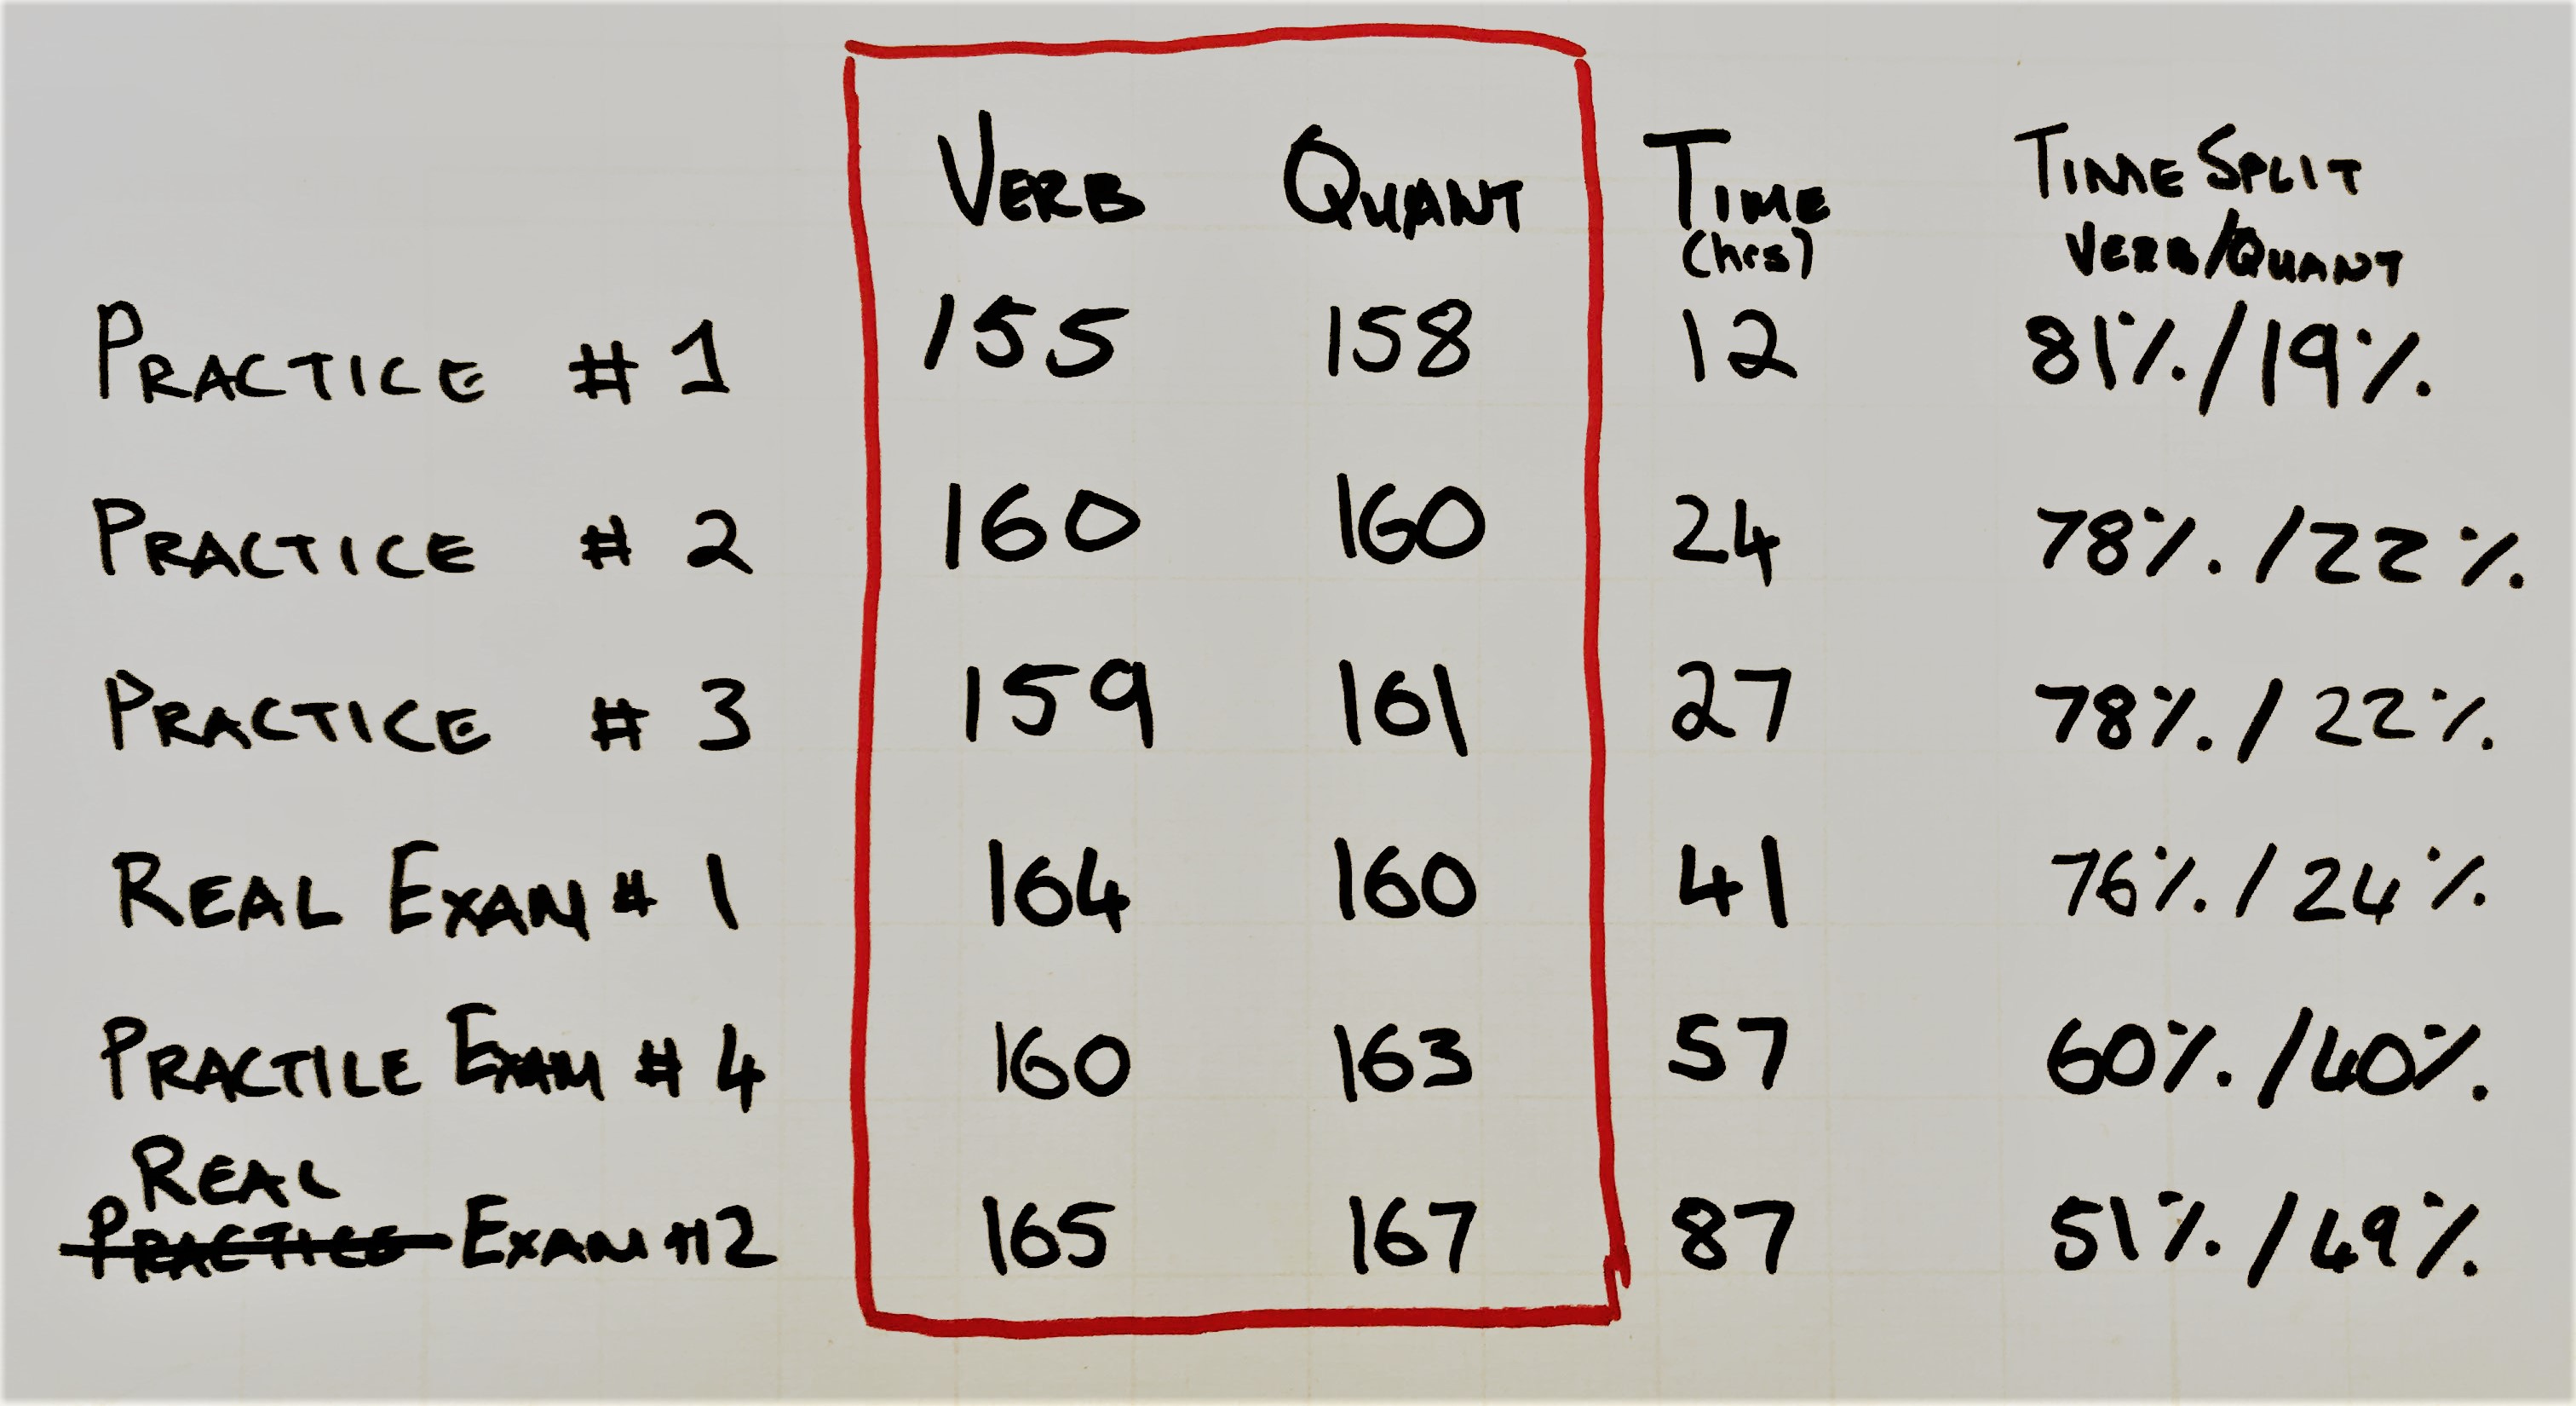 VERB QUANT TIME TIME SPLIT
(hrs) VERB/QUANT
PRACTICE # 1 155 158 12 81%/19%
PRACTICE # 2 160 160 24 78%/22%
PRACTICE # 3 159 161 27 78%/22%
REAL EXAM # 1 164 160 41 76%/24%
PRACTILE EXAM # 4 160 163 57 60%/40%
REAL
PRACTICE EXAM #2 165 167 87 51%/49%